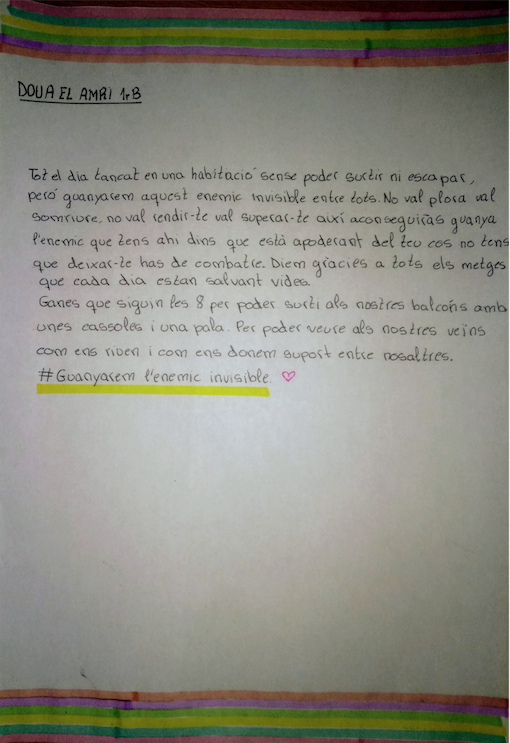 DOUA EL AMRI 1r B
Tot el dia tancat en una habitació sense poder surtir ni escapar,
peró guanyarem aquest enemic invisible entre tots. No val plora val
somriure, no val rendir-te val superar-te així aconseguiras guanya
l'enemic que tens ahi dins que està apoderant del teu cos no tens
que deixar-te has de combatre. Diem gràcies a tots els metges
que cada dia estan salvant vides.
Ganes que siguin les 8 per poder surti als nostres balcons amb
unes cassoles i una pala. Per poder veure als nostres veïns
com ens riuen i com ens donem suport entre nosaltres.
#Guanyarem l'enemic invisible. ♡